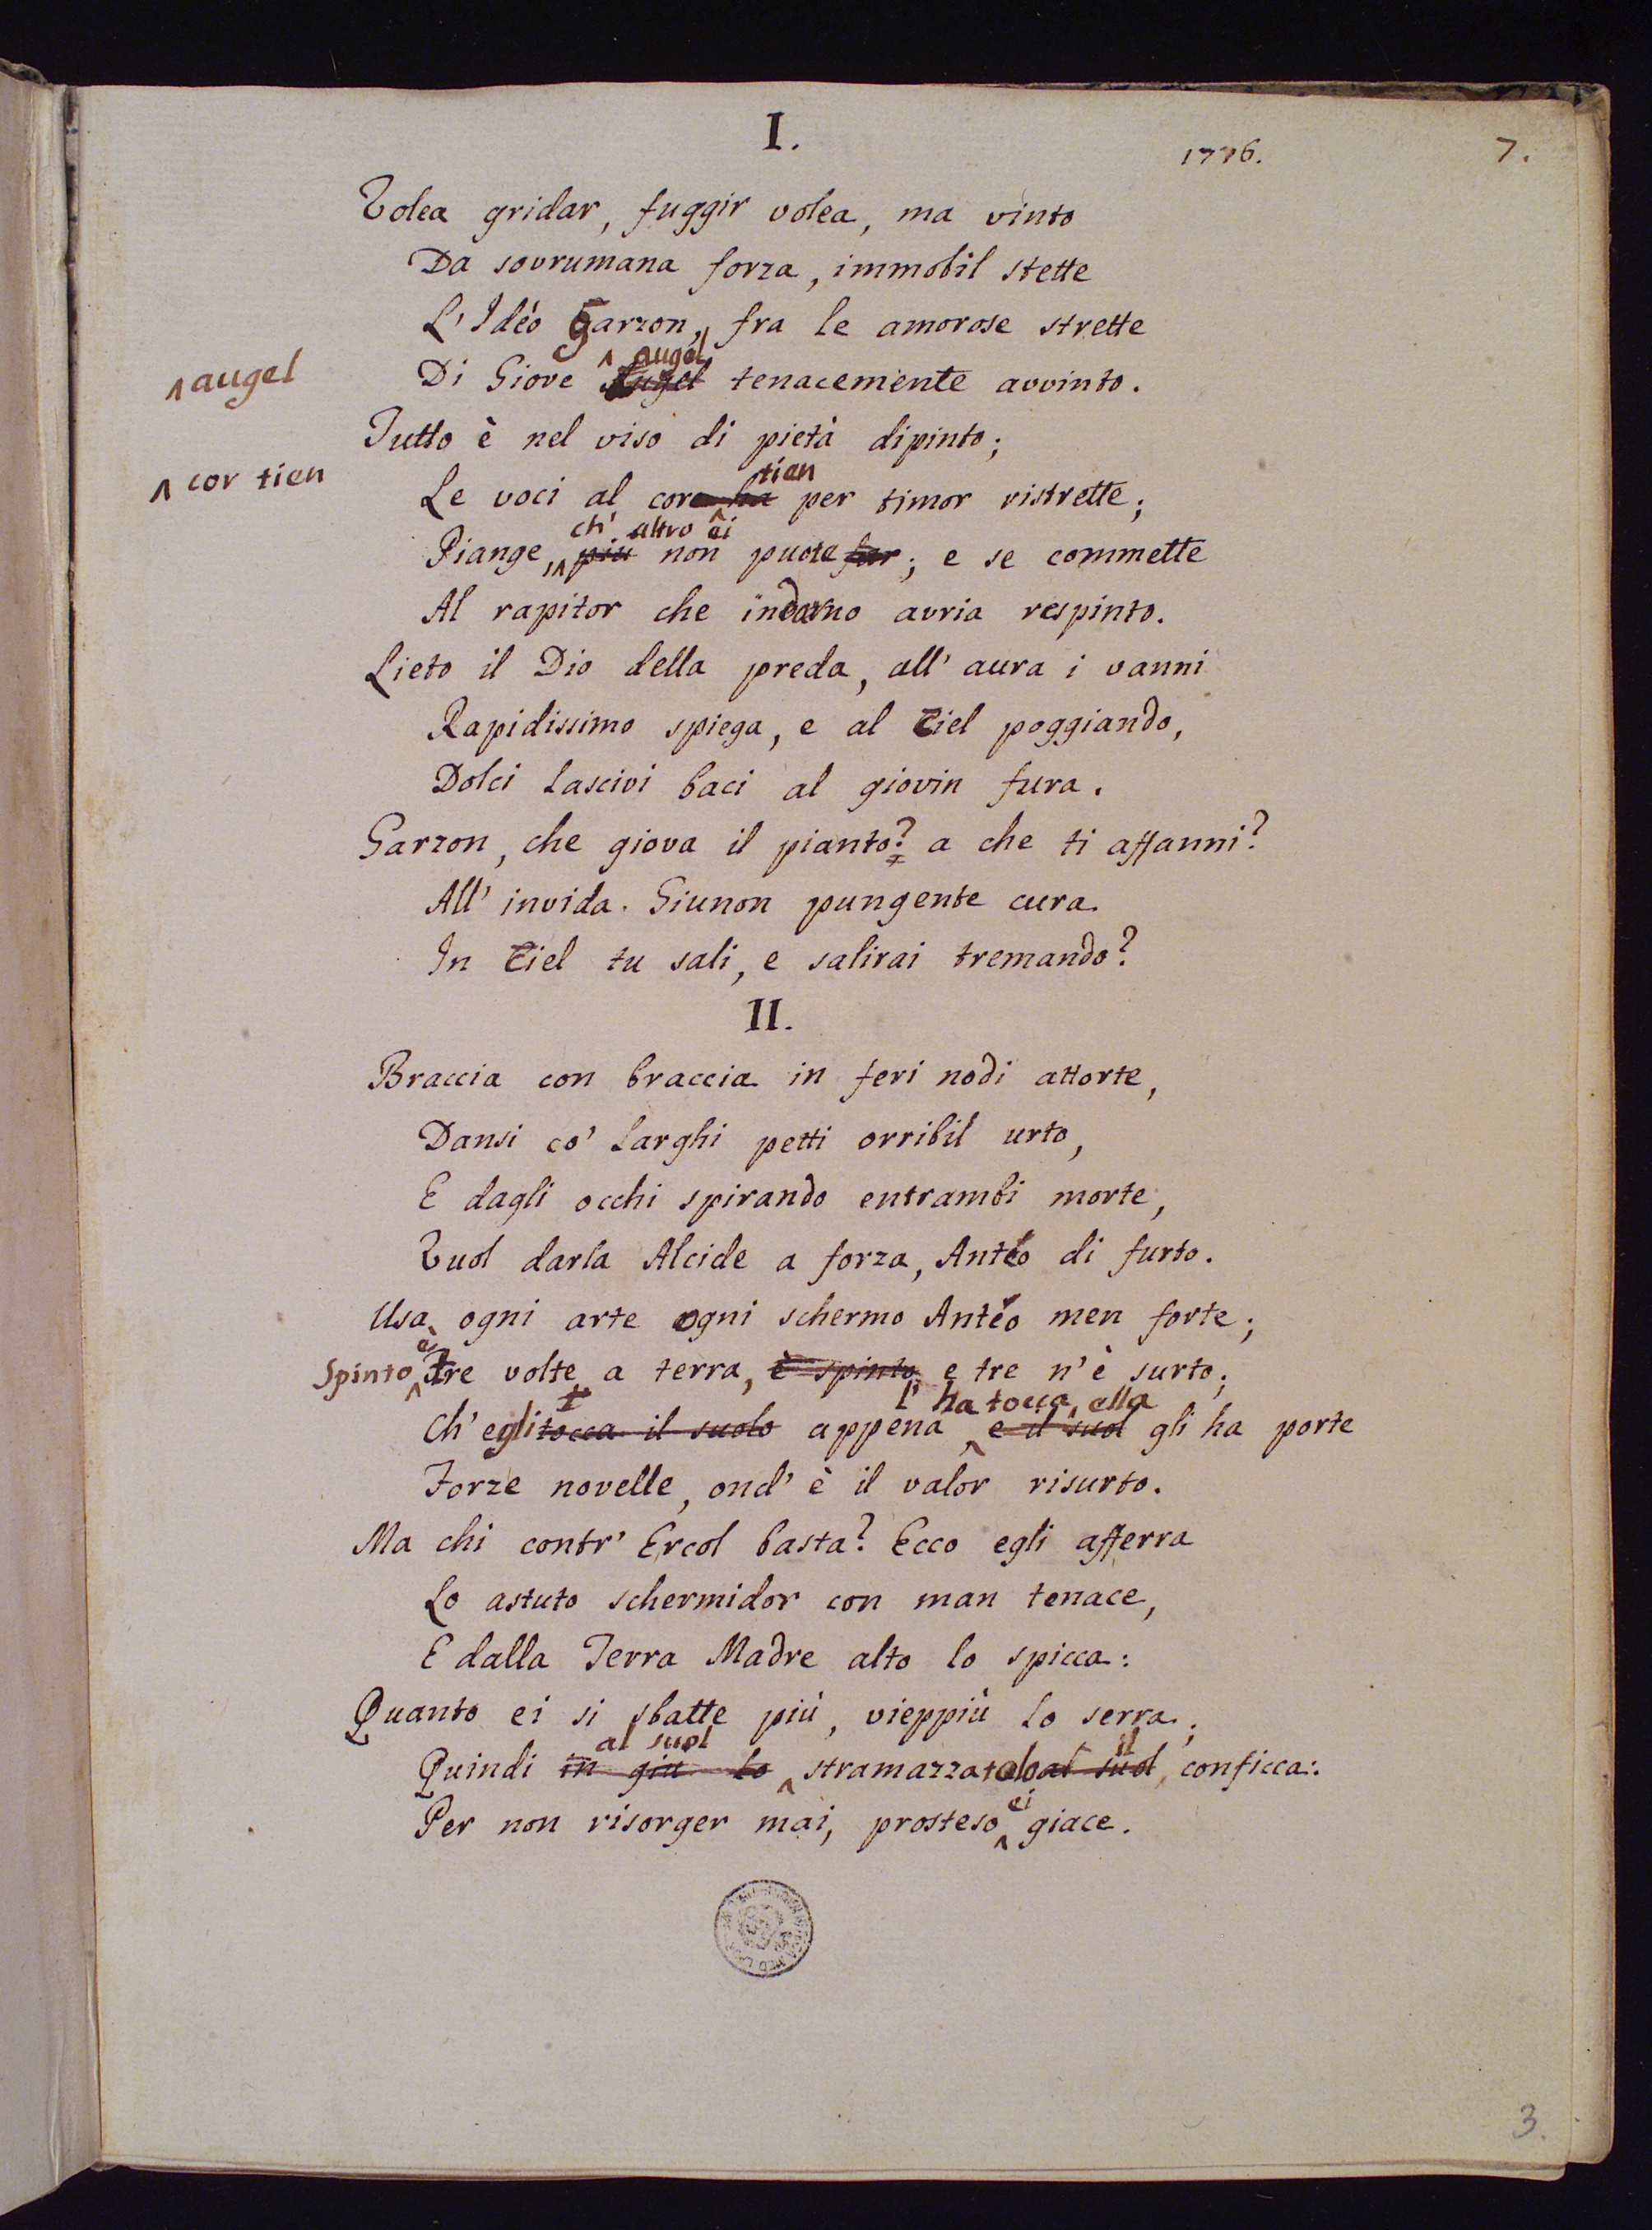 I.
1776.
7.
Volea gridar, fuggir volea, ma vinto
Da sovrumana forza, immobil stette
L' Idéo Garzon, fra le amorose strette
augel
augel
Di Giove Augel tenacemente avvinto.
Tutto è nel viso di pietà dipinto;
cor tien
tien
Le voci al core ha per timor ristrette;
ch' altro ei
Piange, più non puote far; e se commette
Al rapitor che indarno avria respinto.
Lieto il Dio della preda, all' aura i vanni
Rapidissimo spiega, e al Ciel poggiando,
Dolci lascivi baci al giovin fura.
Garzon, che giova il pianto? a che ti affanni?
All' invida Giunon pungente cura
In Ciel tu sali, e salirai tremando?
II.
Braccia con braccia in feri nodi attorte,
Dansi co' larghi petti orribil urto,
E dagli occhi spirando entrambi morte,
Vuol darla Alcide a forza, Antéo di furto.
Usa ogni arte ogni schermo Antéo men forte;
è
Spinto Tre volte a terra, è spinto e tre n' è surto;
l' ha tocca, ella
Ch' egli tocca il suolo appena, e il suol gli ha porte
Forze novelle, ond' è il valor risurto.
Ma chi contr' Ercol basta? Ecco egli afferra
Lo astuto schermidor con man tenace,
E dalla Terra Madre alto lo spicca:
Quanto ei si sbatte più, vieppiù lo serra;
al suol il
Quindi in giù lo stramazzatolo al suol, conficca:
ei
Per non risorger mai, prosteso giace.
3.